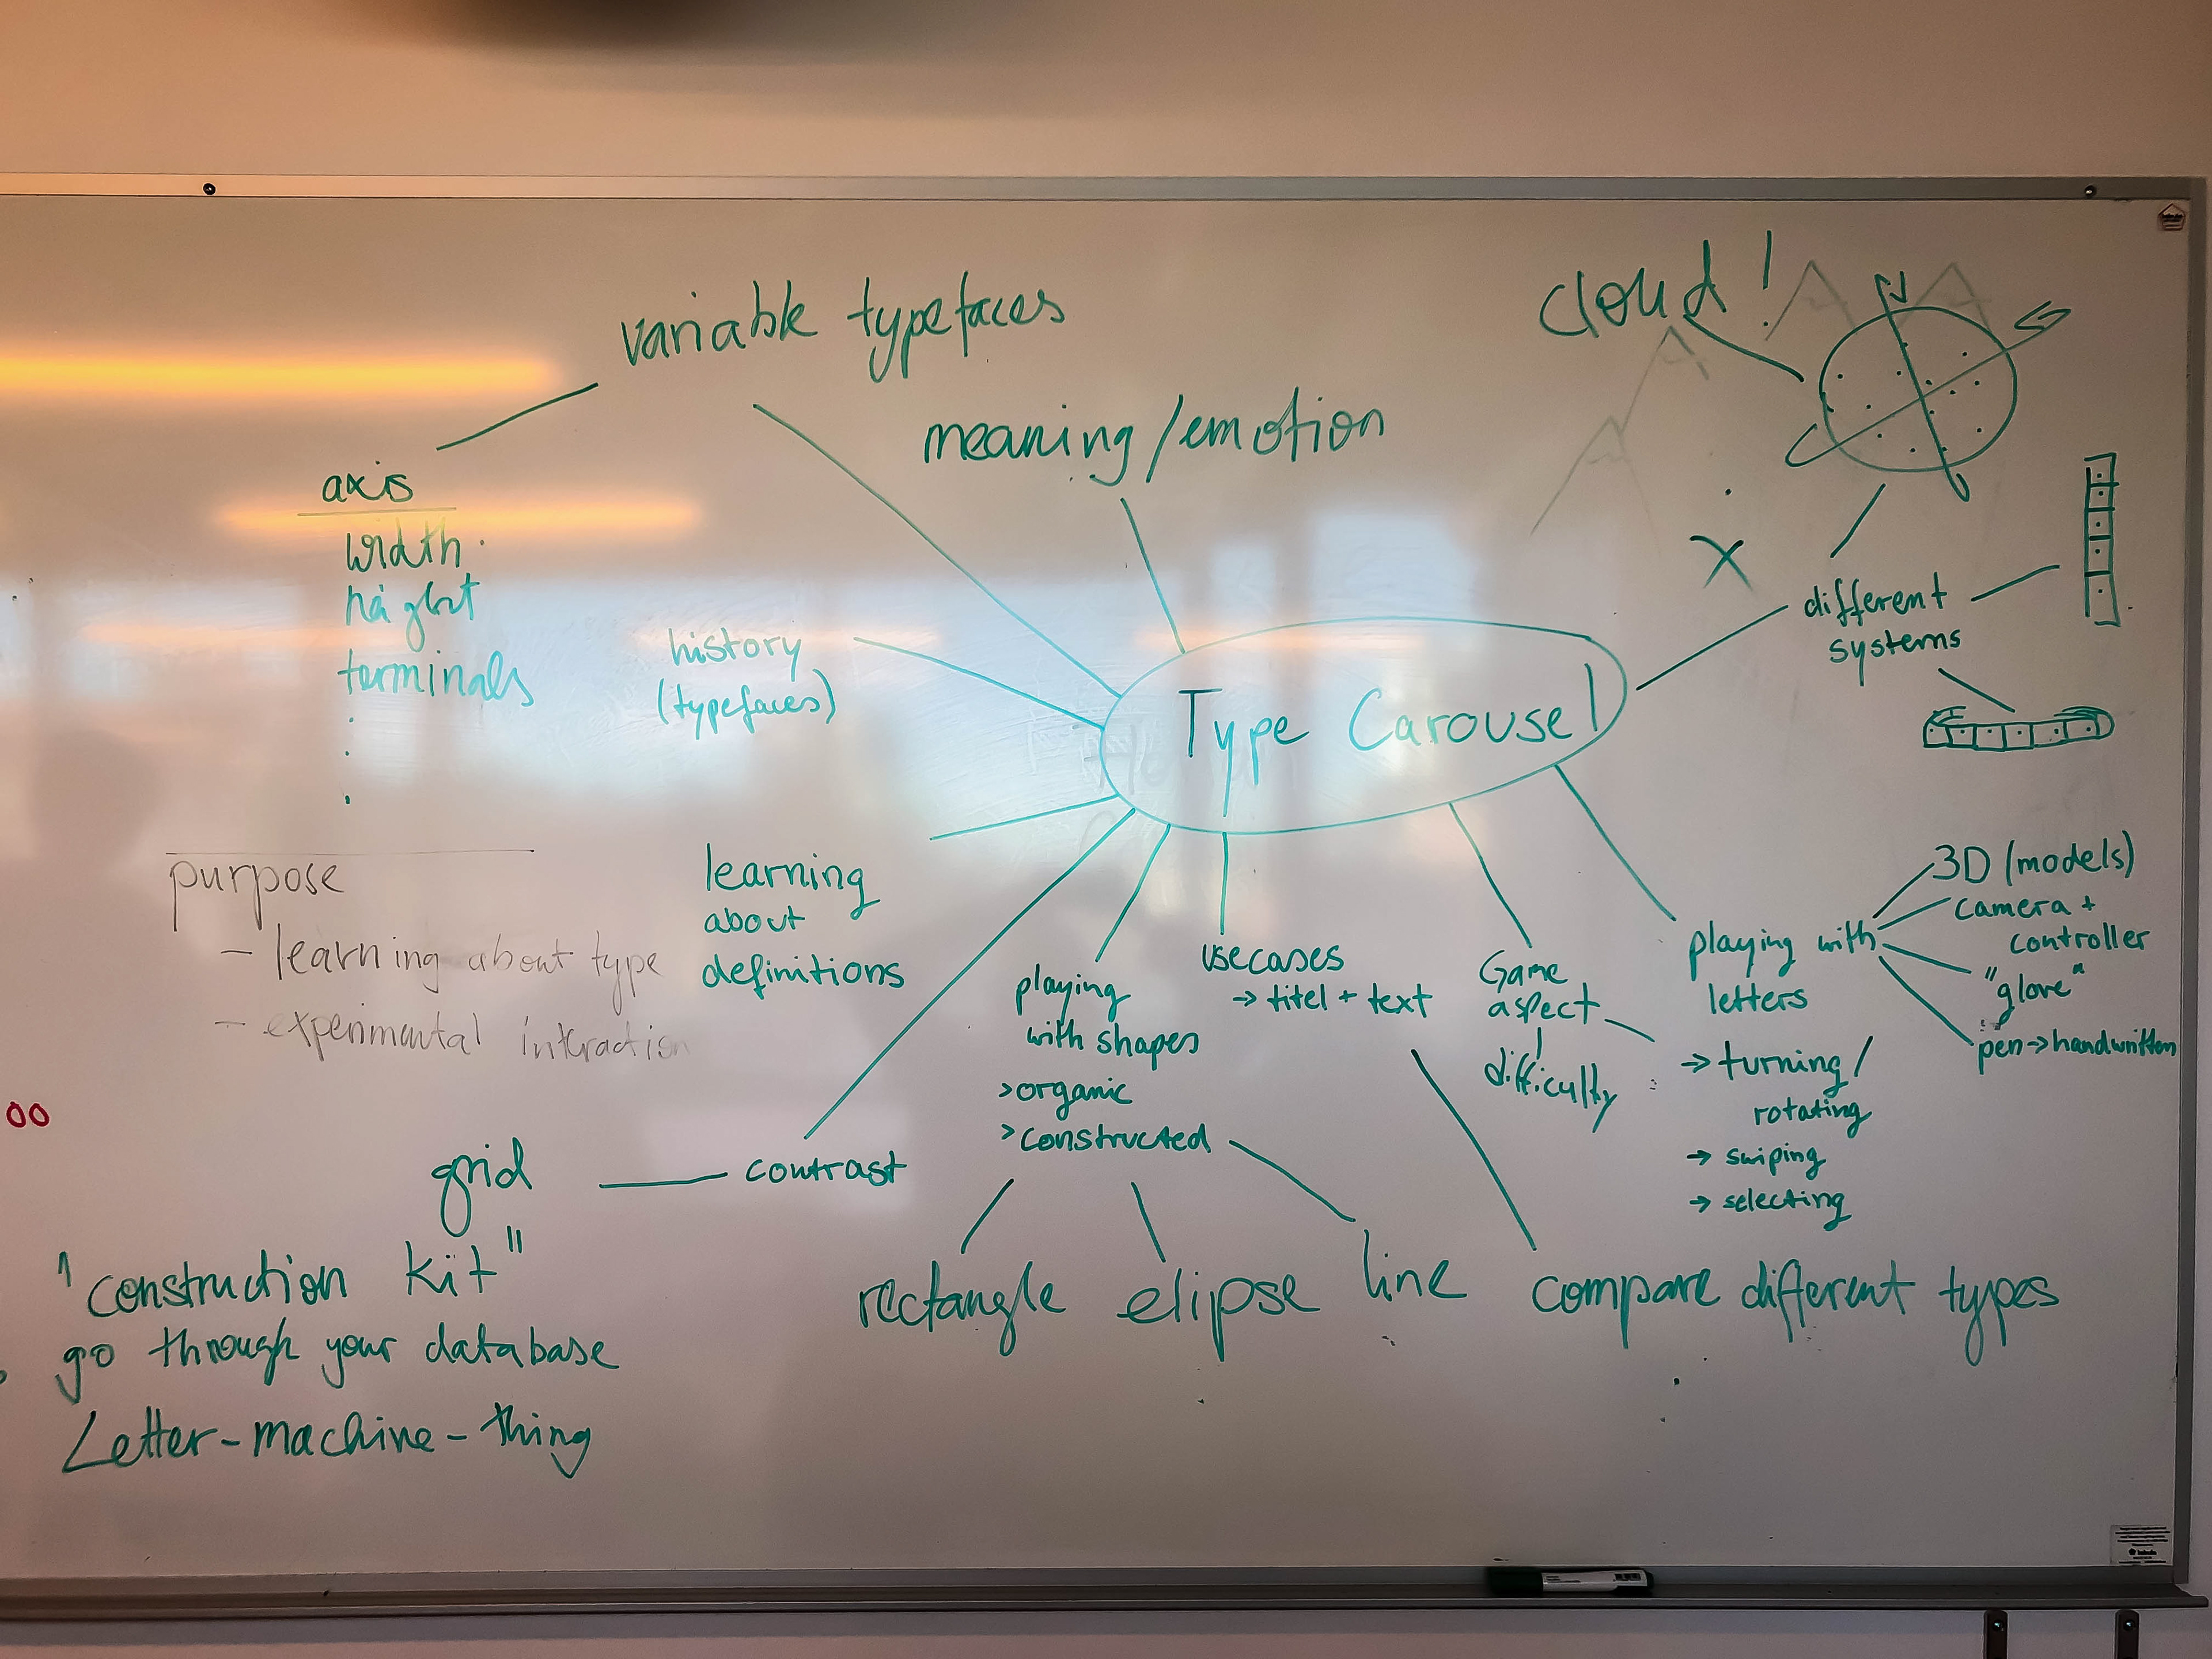 cloud!
variable typefaces
meaning/emotion
axis
width
height
terminals
X
different
systems
history
(typefaces)
Type Carousel
purpose
- learning about type
- experimental interaction
learning
about
definitions
playing
with shapes
>organic
>constructed
usecases
→ titel + text
Game
aspect
difficulty
playing with
letters
3D (models)
camera +
controller
"glove"
pen→handwritten
→ turning/
rotating
→ swiping
→ selecting
00
grid
contrast
rectangle
elipse
line
compare different types
"construction kit"
go through your database
Letter-machine-thing